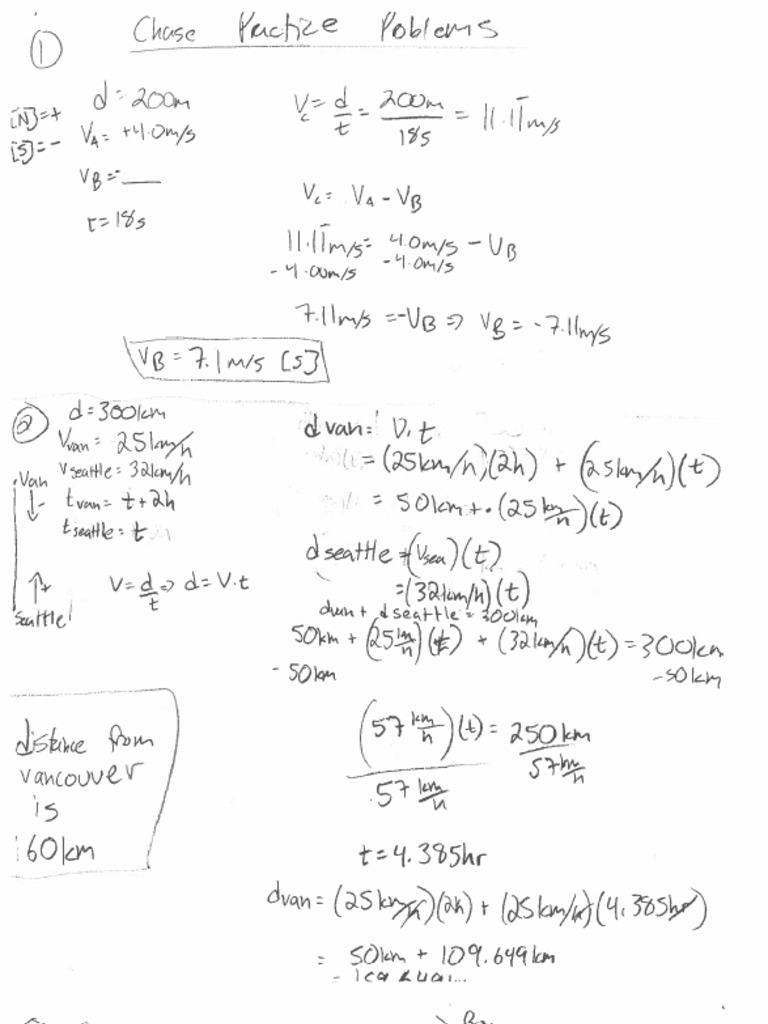 Chase Practize Poblems
①
[N]=+
[S]=-
d = 200m
VA = +4.0m/s
VB = ___
t = 18s
Vc = d/t = 200m/18s = 11.11̄ m/s
Vc = VA - VB
11.11̄ m/s = 4.0m/s - VB
-4.00m/s -4.0m/s
7.11m/s = -VB ⇒ VB = -7.11m/s
VB = 7.1m/s [S]
②
d = 300km
Vvan = 25km/h
Vseattle = 32km/h
tvan = t + 2h
tseattle = t
Van
↓-
↑+
Seattle
V = d/t ⇒ d = V·t
dvan = V·t
= (25km/h)(2h) + (25km/h)(t)
= 50km + (25 km/h)(t)
dseattle = (Vsea)(t)
= (32km/h)(t)
dvan + dseattle = 300km
50km + (25 km/h)(t) + (32km/h)(t) = 300km
-50km -50km
(57 km/h)(t) = 250km
57 km/h 57 km/h
t = 4.385hr
dvan = (25km/h)(2h) + (25km/h)(4.385hr)
= 50km + 109.649km
distance from
vancouver
is
160km